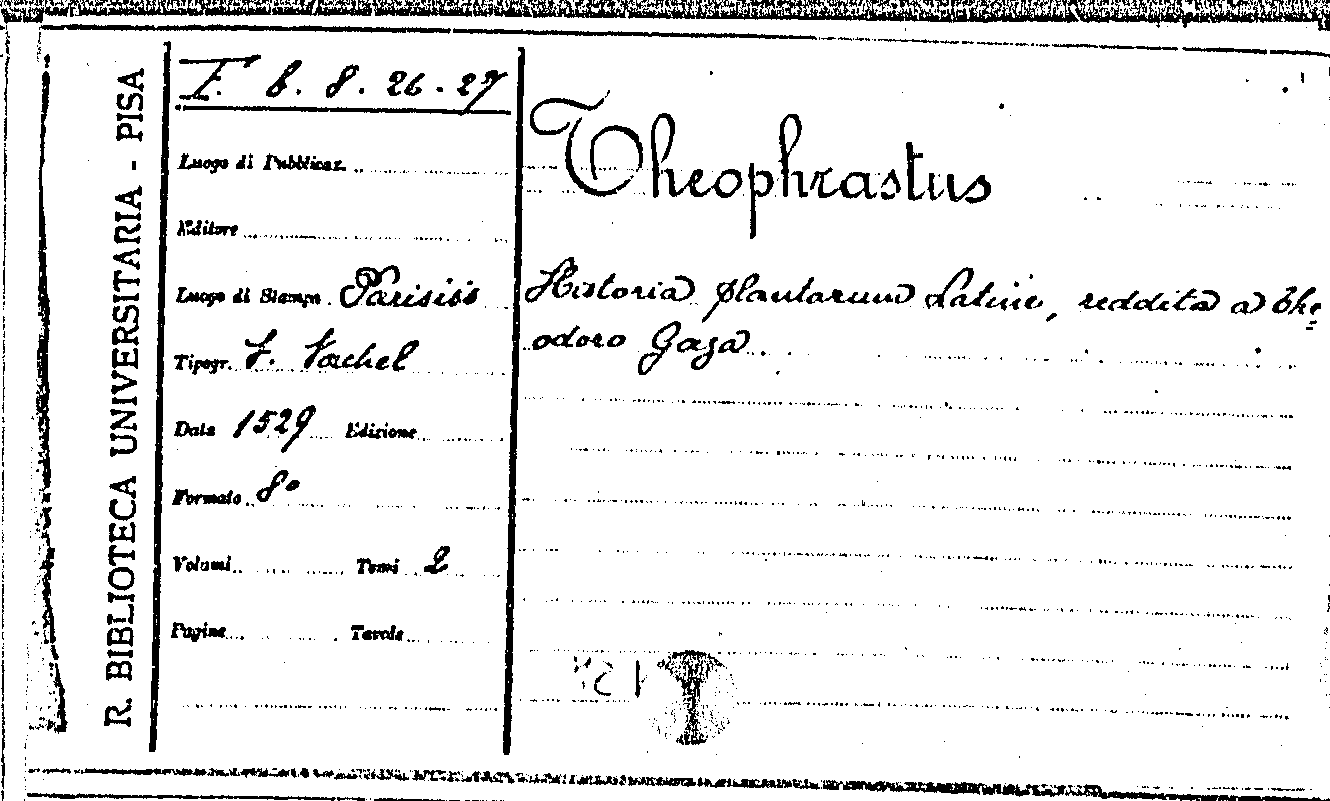 R. BIBLIOTECA UNIVERSITARIA - PISA
F. b. 8. 26. 27
Luogo di Pubblicaz.
Editore
Luogo di Stampa Parisiis
Tipogr.
Data 1529 Edizione
Formato 8°
Volumi Tomi 2
Pagine Tavole
Theophrastus
Historia plantarum Latine, reddita a The=
odoro Gaza.